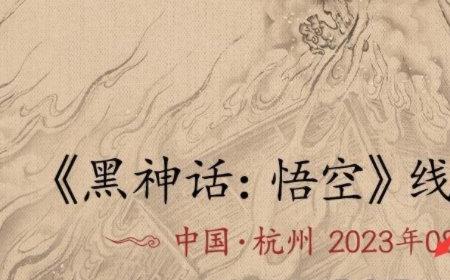 《黑神话：悟空》线
中国·杭州 2023年0